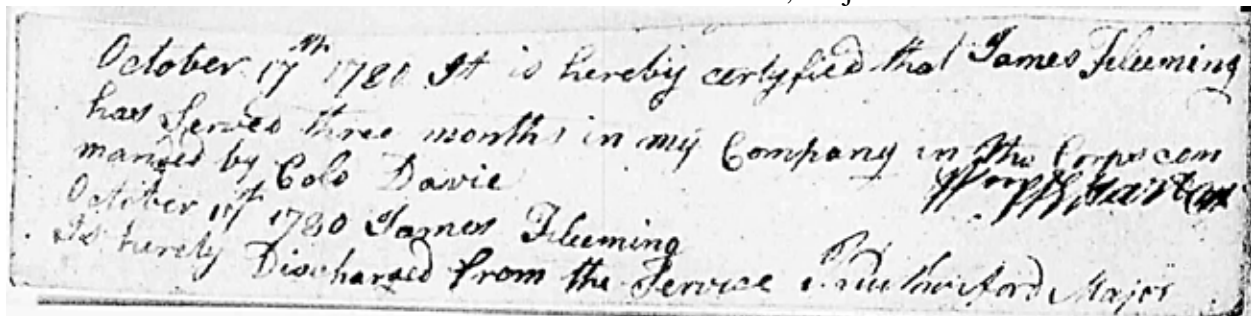 October 17th 1780 It is hereby certyfied that James Fleeming
has Served three months in my Company in the Corps com
manded by Colo Davie
October 17th 1780 James Fleeming
Is hereby Discharged from the Service Major